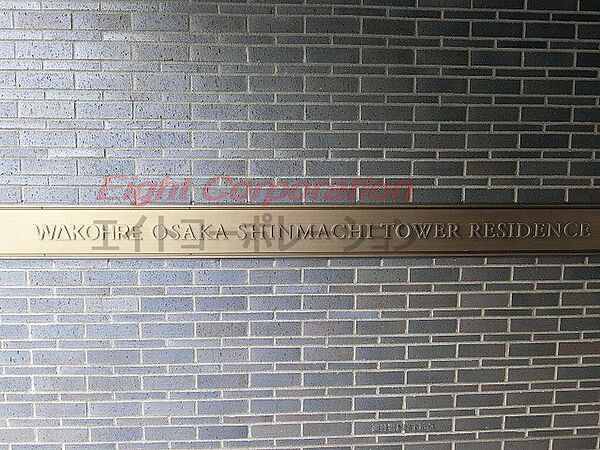 Eight Corporation
WAKOHRE OSAKA SHINMACHI TOWER RESIDENCE
エイトコーポレーション